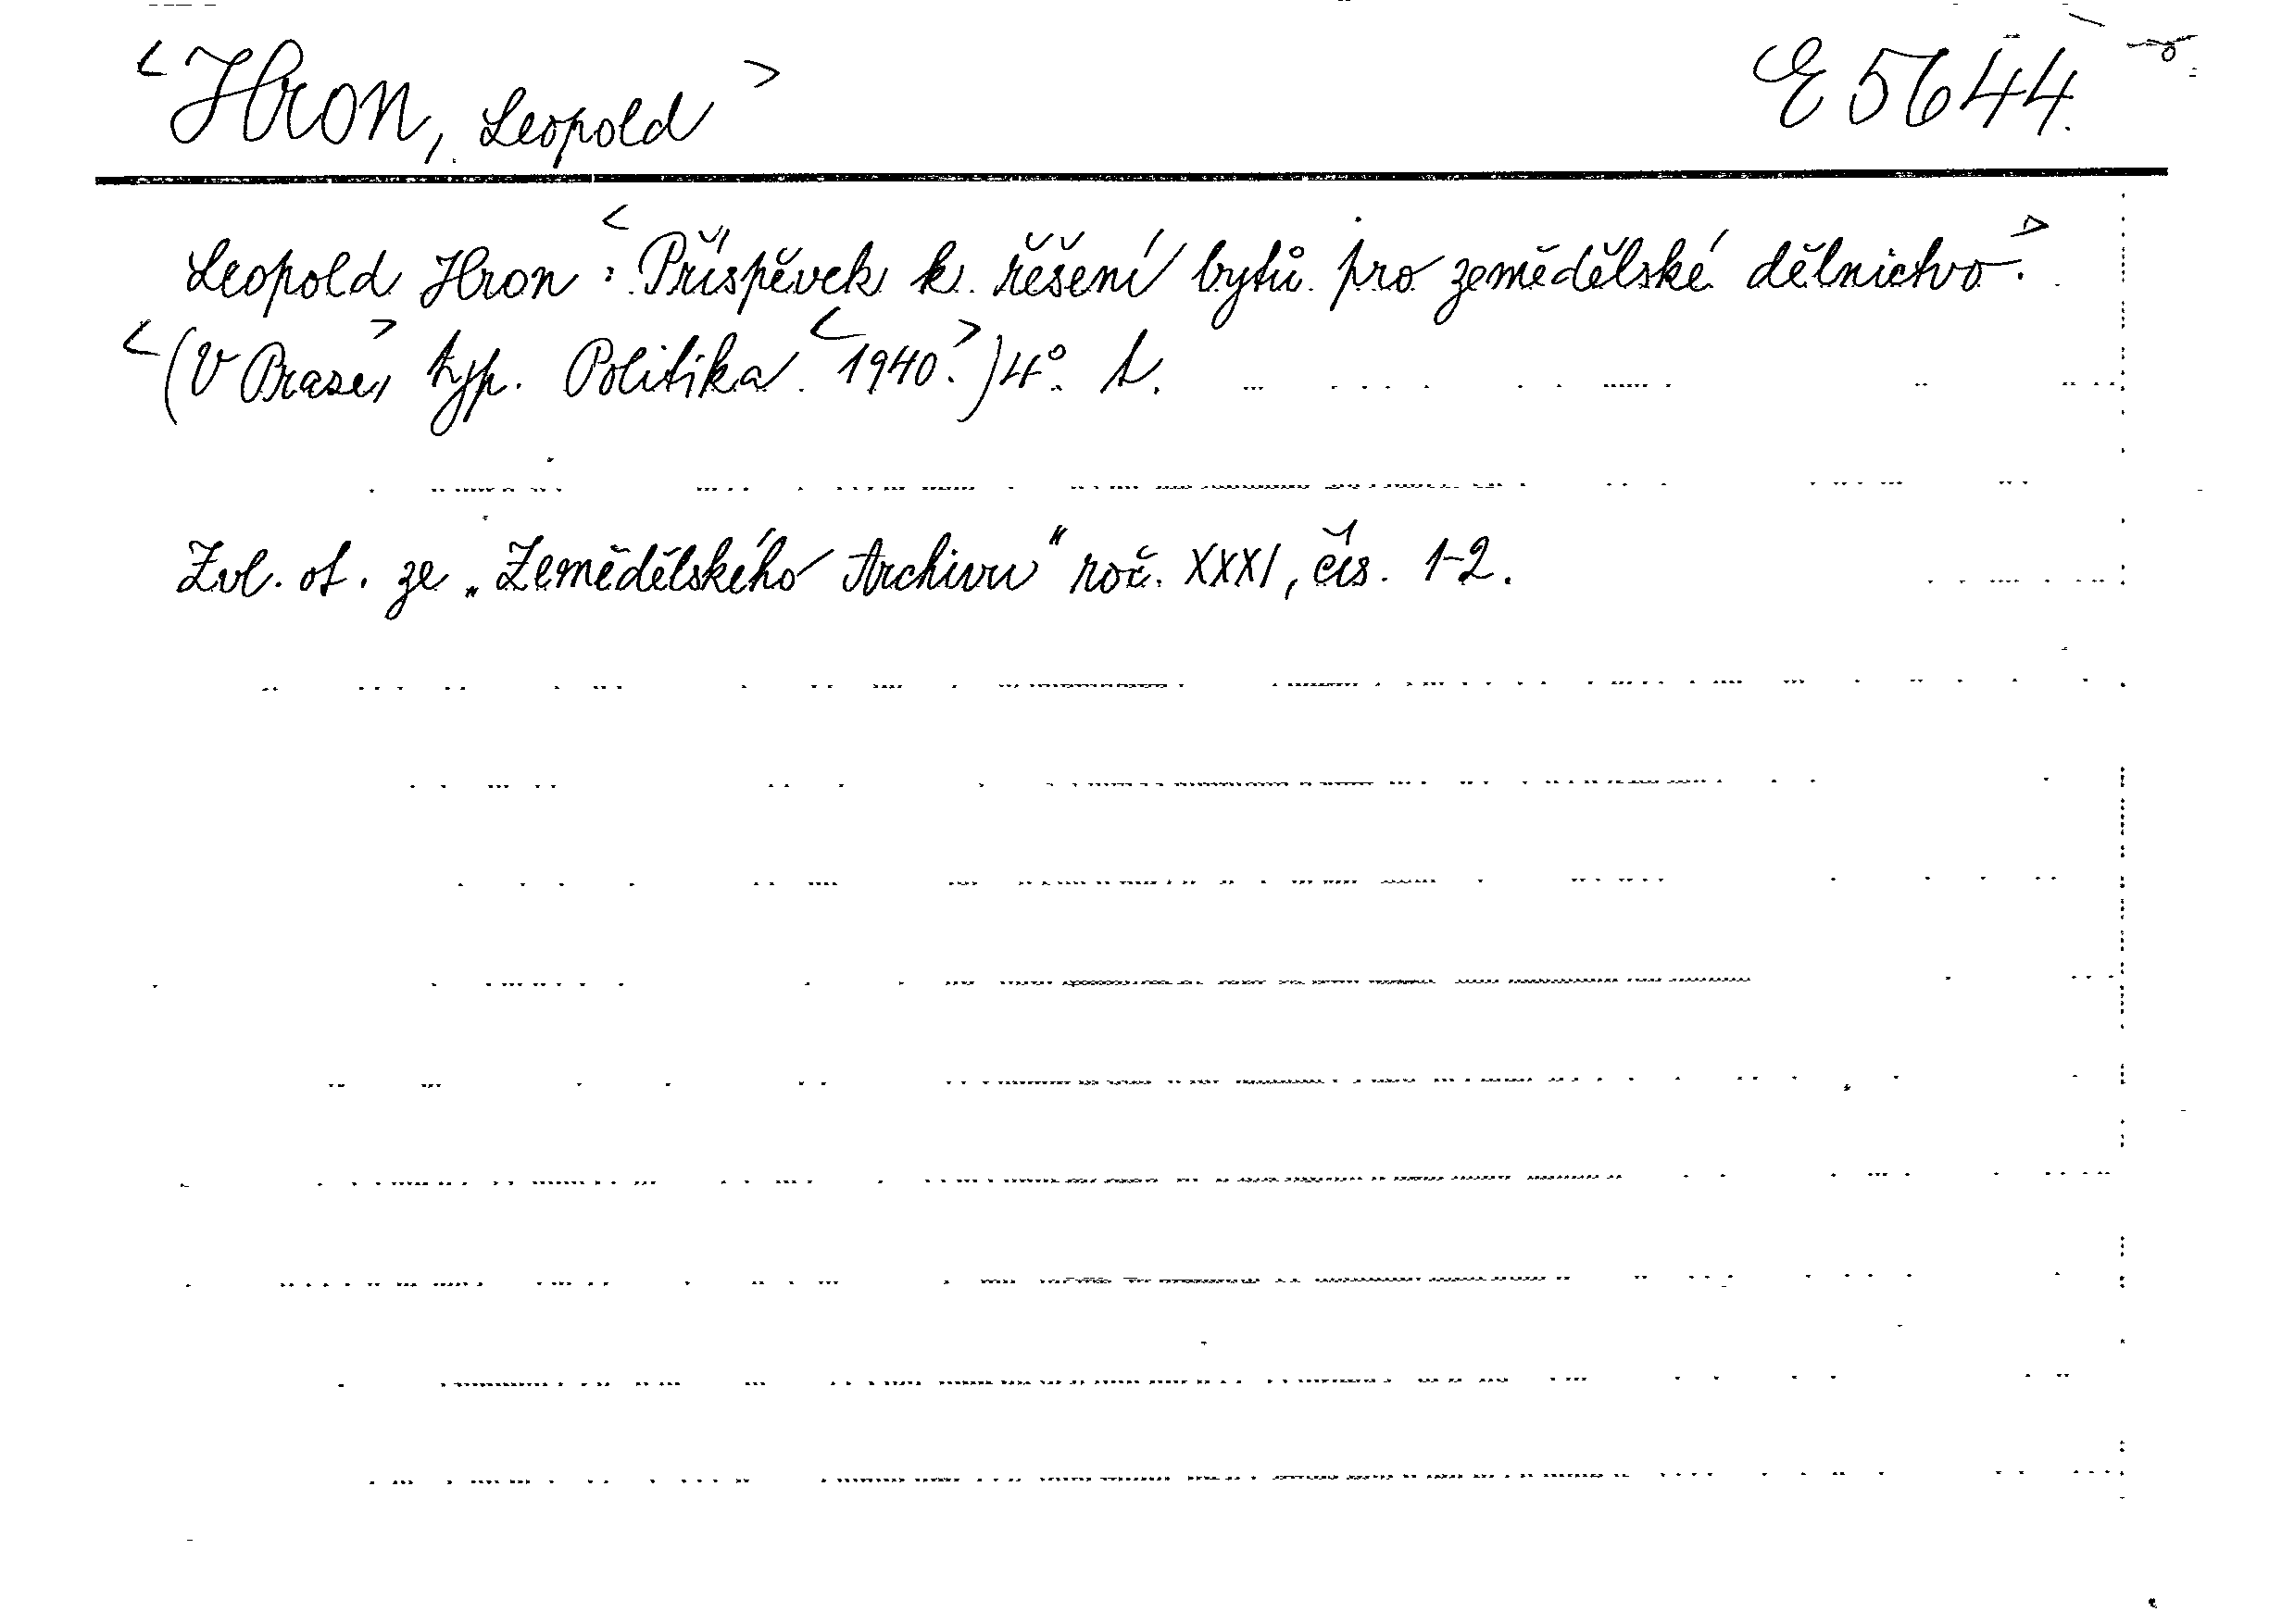 <Hron, Leopold> E 5644.
Leopold Hron: <Příspěvek k řešení bytů pro zemědělské dělnictvo.>
<(V Praze,> typ. Politika <1940.>) 4°. A.
Zvl. ot. ze „Zemědělského Archivu" roč. XXXI, čís. 1-2.